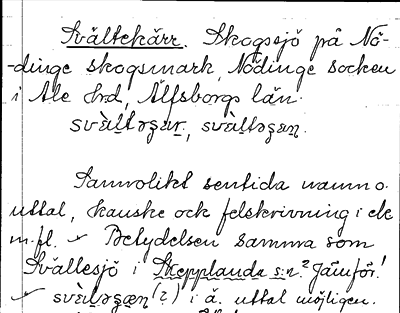 Svältekärr. Skogssjö på Nö-
-dinge skogsmark, Nödinge socken
i Ale hrd, Älfsborgs län.
svä̀ltəgær, svä̀ltəgæn.
Sannolikt sentida namn o.
uttal, kanske ock felskrivning i ek
m.fl. Betydelsen samma som
Svältesjö i Skepplanda s:n? Jämför!
svä̀ləgæn (?) i ä. uttal möjligen.